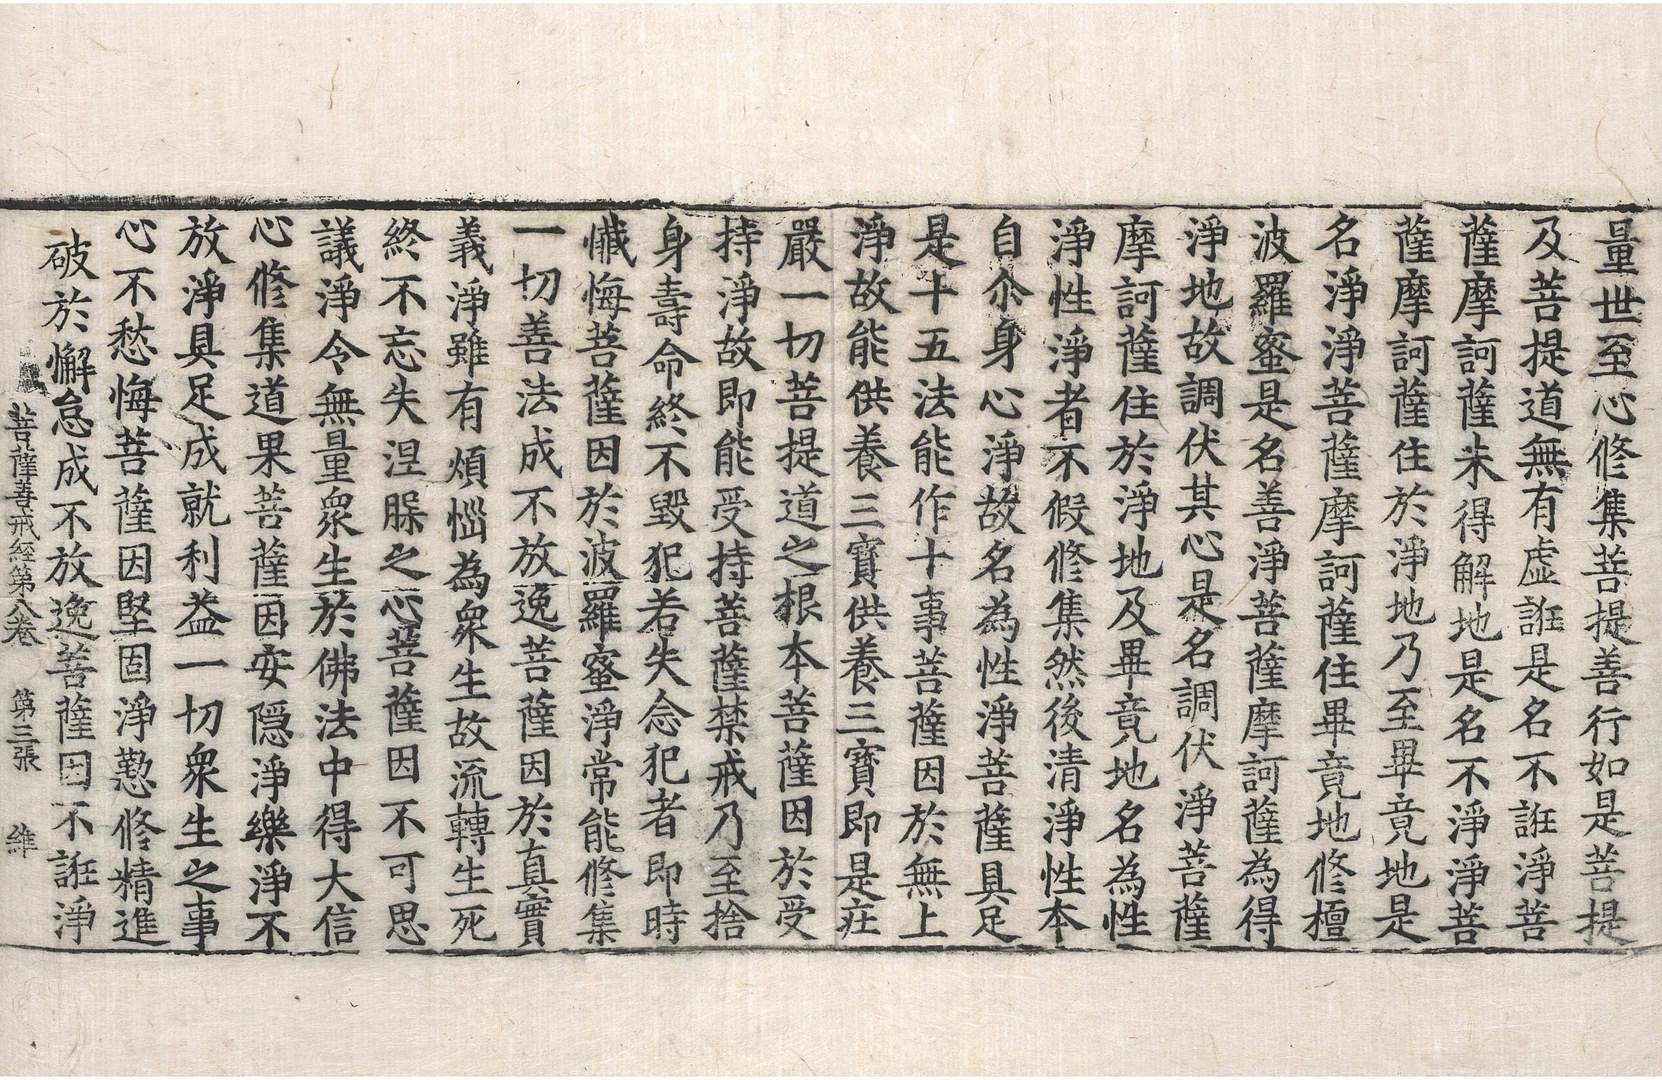 量世至心修集菩提善行如是菩提
及菩提道無有虛誑是名不誑淨菩
薩摩訶薩未得解地是名不淨淨菩
薩摩訶薩住於淨地乃至畢竟地是
名淨淨菩薩摩訶薩住畢竟地修檀
波羅蜜是名善淨菩薩摩訶薩為得
淨地故調伏其心是名調伏淨菩薩
摩訶薩住於淨地及畢竟地名為性
淨性淨者不假修集然後清淨性本
自尒身心淨故名為性淨菩薩具足
是十五法能作十事菩薩因於無上
淨故能供養三寶供養三寶即是莊
嚴一切菩提道之根本菩薩因於受
持淨故即能受持菩薩禁戒乃至捨
身壽命終不毀犯若失念犯者即時
懺悔菩薩因於波羅蜜淨常能修集
一切善法成不放逸菩薩因於真實
義淨雖有煩惱為衆生故流轉生死
終不忘失涅槃之心菩薩因不可思
議淨令無量衆生於佛法中得大信
心修集道果菩薩因安隱淨樂淨不
放淨具足成就利益一切衆生之事
心不愁悔菩薩因堅固淨懃修精進
破於懈怠成不放逸菩薩因不誑淨
菩薩善戒經第八卷 第三張 維